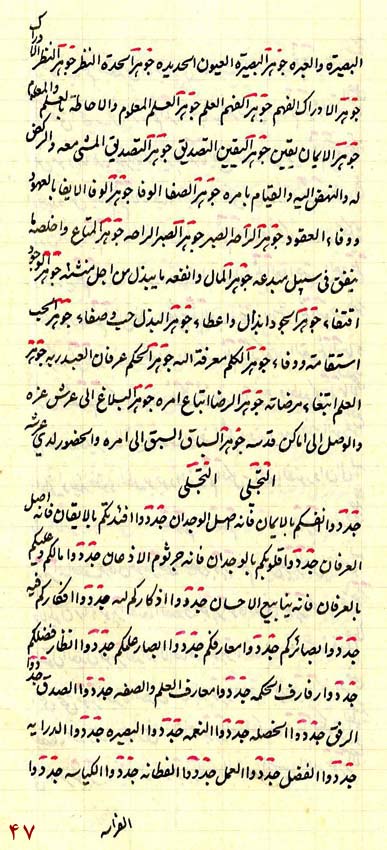 البصيرة والعبره جوهر البصيرة العيون الحديده جوهر الحدة النظر جوهر النظر الادراك
جوهر الادراك الفهم جوهر الفهم العلم جوهر العلم المعلوم والاحاطة بالعلم والمعلوم
جوهر الايمان يقين جوهر اليقين التصديق جوهر التصديق المشى معه والركض
له والنهض اليه والقيام بامره جوهر الصفا الوفا جوهر الوفا الايفا بالعهود
ووفاء العقود جوهر الراحه الصبر جوهر الصبر الراحه جوهر المتاع واخلصه ما
ينفق فى سبيل مبدعه جوهر المال وانفعه ما يبذل من اجل منشئه جوهر الوجود
اقتفاء جوهر الجود ابذال واعطاء جوهر البذل حب وصفاء جوهر الحب
استقامة ووفاء جوهر الكلم معرفة الله جوهر الحكم عرفان العبد ربه جوهر
العلم ابتغاء مرضاته جوهر الرضا اتباع امره جوهر البلاغ الى عرش عزه
والوصل الى اماكن قدسه جوهر السباق السبق الى امره والحضور لدى عرشه
التجلى التجلى
جددوا انفسكم بالايمان فانه اصل الوجدان جددوا افئدتكم بالايقان فانه اصل
العرفان جددوا قلوبكم بالوجدان فانه جرثوم الاذعان جددوا مالكم وعليكم
بالعرفان فانه ينابيع الاحسان جددوا اذكاركم لله جددوا افكاركم فيه
جددوا بصائركم جددوا معارفكم جددوا ابصار علمكم جددوا انظار فضلكم
جددوا رفارف الحكمه جددوا معارف العلم والصفه جددوا الصدق جددوا
الرفق جددوا الخصله جددوا النعمه جددوا البصيره جددوا الدرايه
جددوا الفضل جددوا العمل جددوا الفطانه جددوا الكياسه جددوا
الفراسه
۴۷